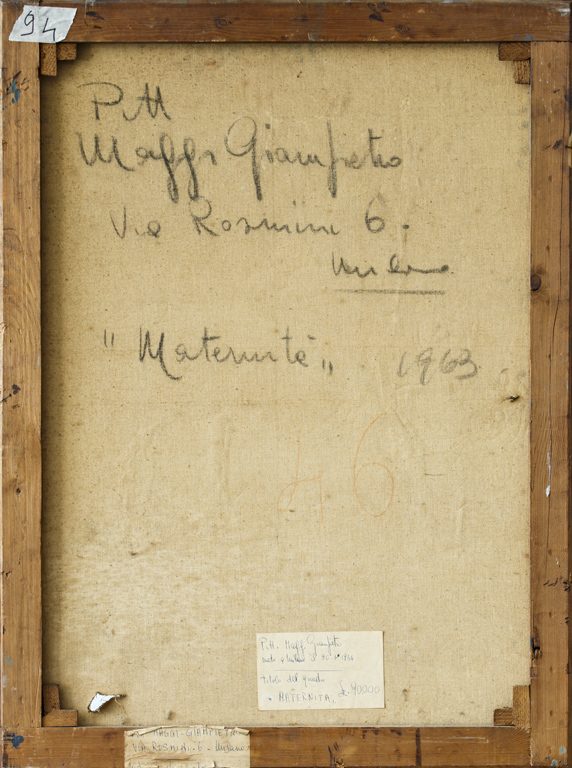 94
Pitt
Maggi Giampietro
Via Rosmini 6.
Milano
"Maternità„ 1963
46
Pitt. Maggi Giampietro
nato a Milano il
titolo del quadro
"MATERNITA„ £. 40000
MAGGI-GIAMPIETRO
VIA ROSMINI. 6. Milano